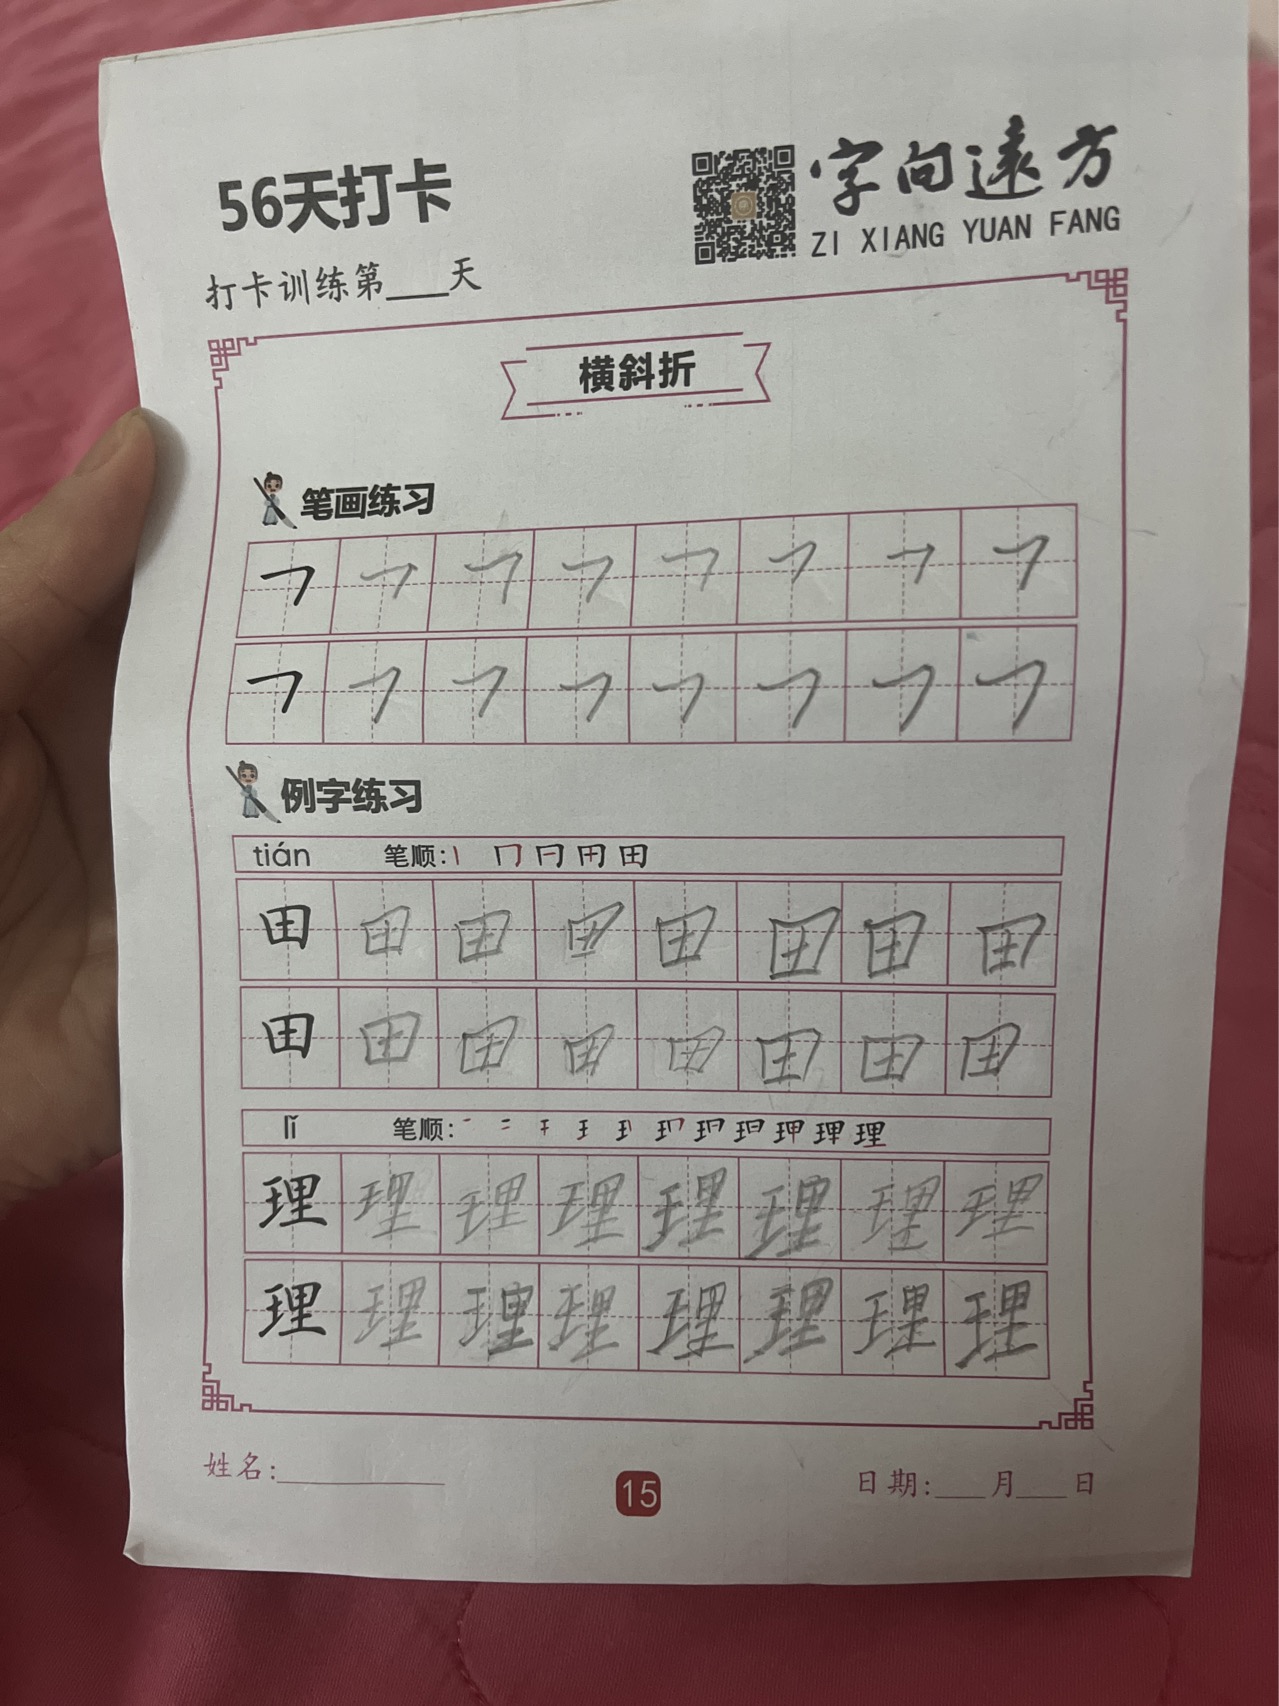 56天打卡
字向遠方
ZI XIANG YUAN FANG
打卡训练第___天
横斜折
笔画练习
㇕ ㇕ ㇕ ㇕ ㇕ ㇕ ㇕ ㇕
㇕ ㇕ ㇕ ㇕ ㇕ ㇕ ㇕ ㇕
例字练习
tián 笔顺: 丨 冂 日 田 田
田 田 田 田 田 田 田 田
田 田 田 田 田 田 田 田
lǐ 笔顺:
理 理 理 理 理 理 理 理
理 理 理 理 理 理 理 理
姓名:__________
15
日期:___月___日